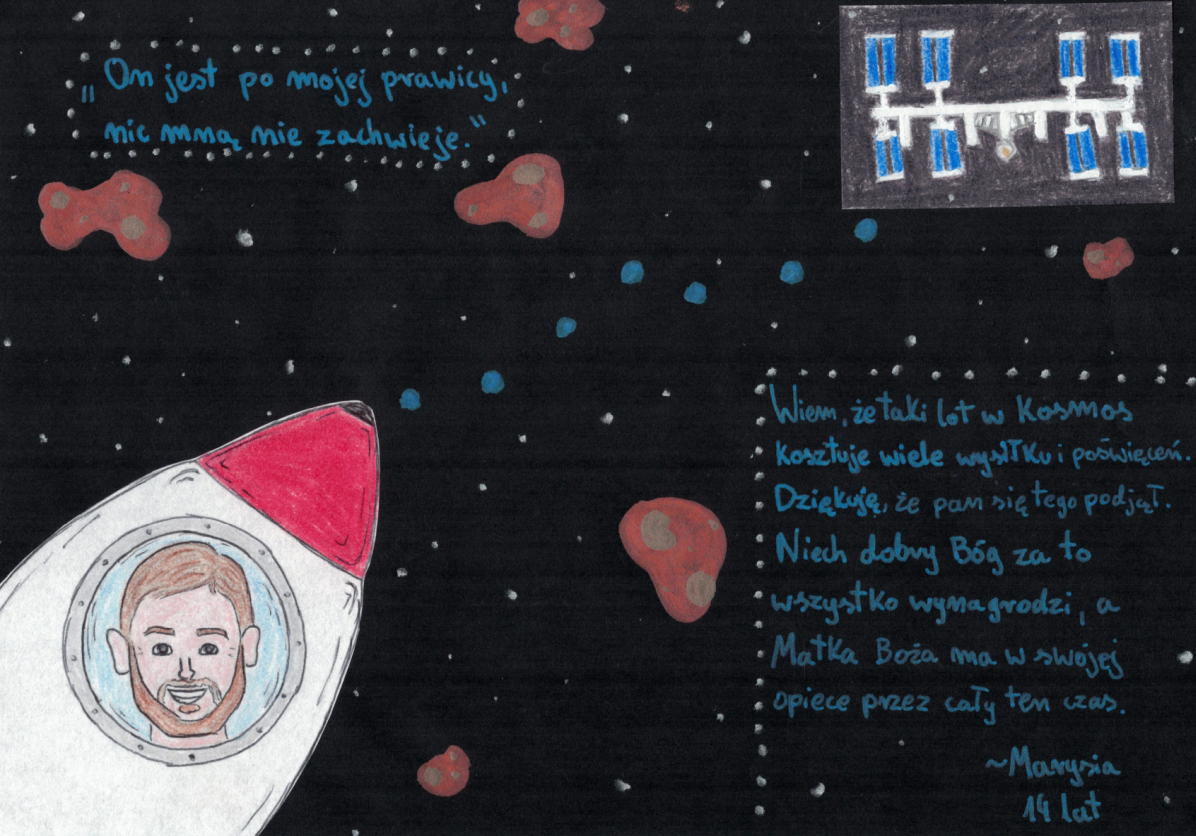 „On jest po mojej prawicy,
nic mną nie zachwieje."
Wiem, że taki lot w Kosmos
kosztuje wiele wysiłku i poświęceń.
Dziękuję, że pan się tego podjął.
Niech dobry Bóg za to
wszystko wynagrodzi, a
Matka Boża ma w swojej
opiece przez cały ten czas.
~Marysia
14 lat